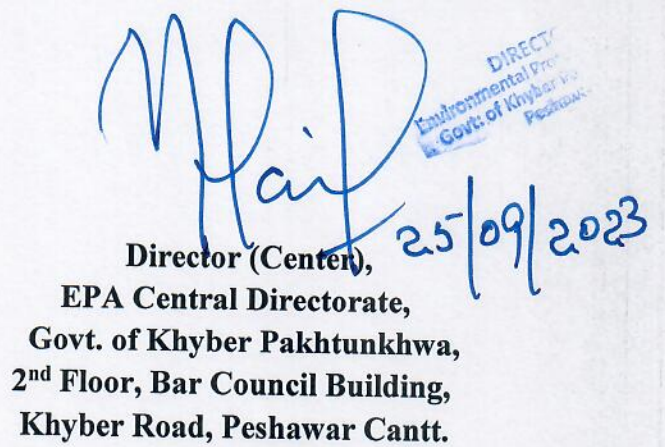 DIRECT
Environmental Pro
Govt: of Khyber
Peshaw
25/09/2023
Director (Center),
EPA Central Directorate,
Govt. of Khyber Pakhtunkhwa,
2nd Floor, Bar Council Building,
Khyber Road, Peshawar Cantt.